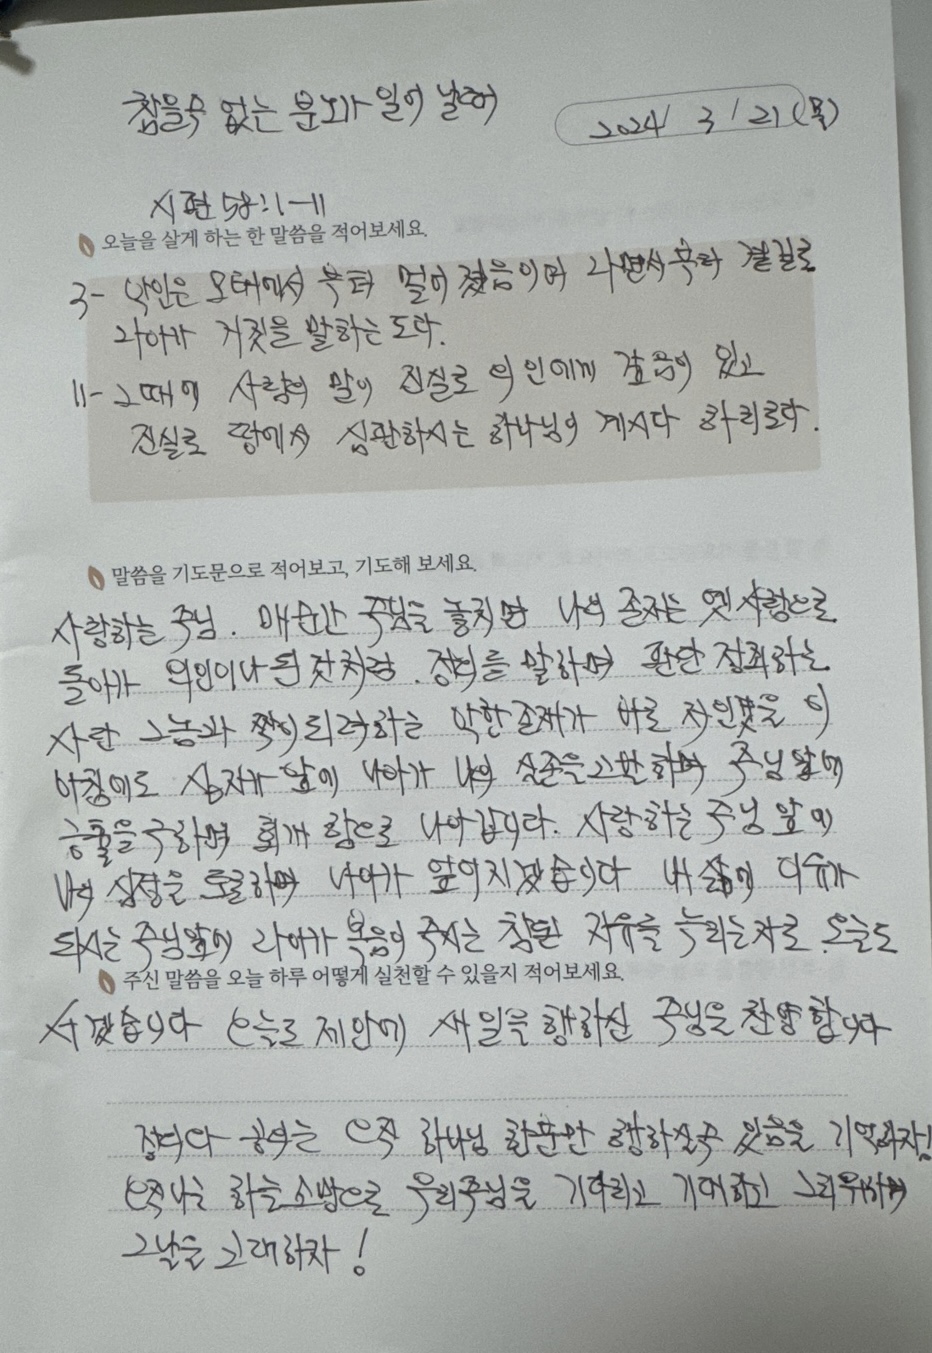 참을수 없는 분노가 일어 날때
2024/ 3/21(목)
시편 58:1-11
오늘을 살게 하는 한 말씀을 적어보세요.
3- 악인은 모태에서 부터 멀어 졌음이며 나면서 부터 곁길로
나아가 거짓을 말하는 도다.
11- 그때에 사람의 말이 진실로 의인에게 갚음이 있고
진실로 땅에서 심판하시는 하나님이 계시다 하리로다.
말씀을 기도문으로 적어보고, 기도해 보세요.
사랑하는 주님. 매순간 주님을 놓치면 나의 존재는 옛사람으로
돌아가 의인이나 된것처럼. 정의를 말하며 판단 정죄하는
사단 그놈과 짝이되려하는 악한존재가 바로 자인못을 이
아침에도 십자가 앞에 나아가 나의 실존을 고발하며 주님앞에
긍휼을 구하며 회개 함으로 나아갑니다. 사랑하는 주님 앞에
나의 심정을 토로하며 나아가 엎어지겠습니다 내 삶에 이유가
되시는 주님앞에 나아가 복음이 주시는 참된 자유를 누리는자로 오늘도
주신 말씀을 오늘 하루 어떻게 실천할 수 있을지 적어보세요.
서겠습니다 오늘도 제안에 새일을 행하실 주님을 찬양합니다
정의와 공의는 오직 하나님 한분만 행하실수 있음을 기억하자!
오직나는 하늘소망으로 우리주님을 기다리고 기대하고 그리워하며
그날을 고대하자!